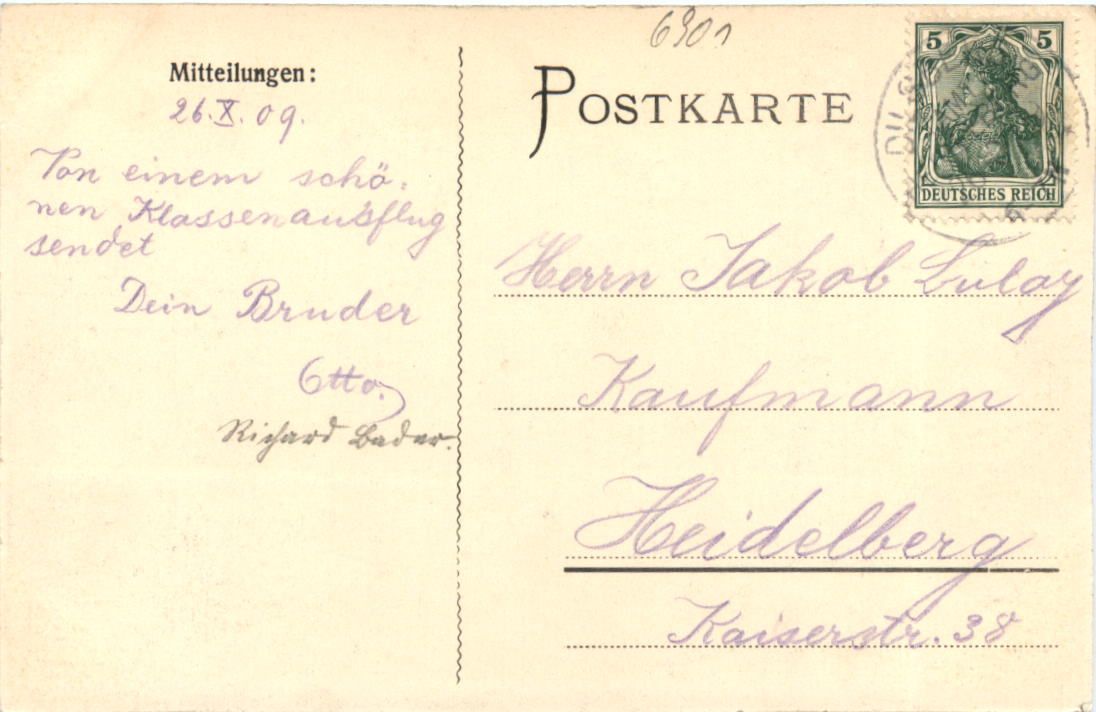 6901
Mitteilungen:
26.X.09.
Von einem schö-
nen Klassenausflug
sendet
Dein Bruder
Otto.
Richard Bader.
POSTKARTE
5 5
DEUTSCHES REICH
Herrn Jakob Lulay
Kaufmann
Heidelberg
Kaiserstr. 38